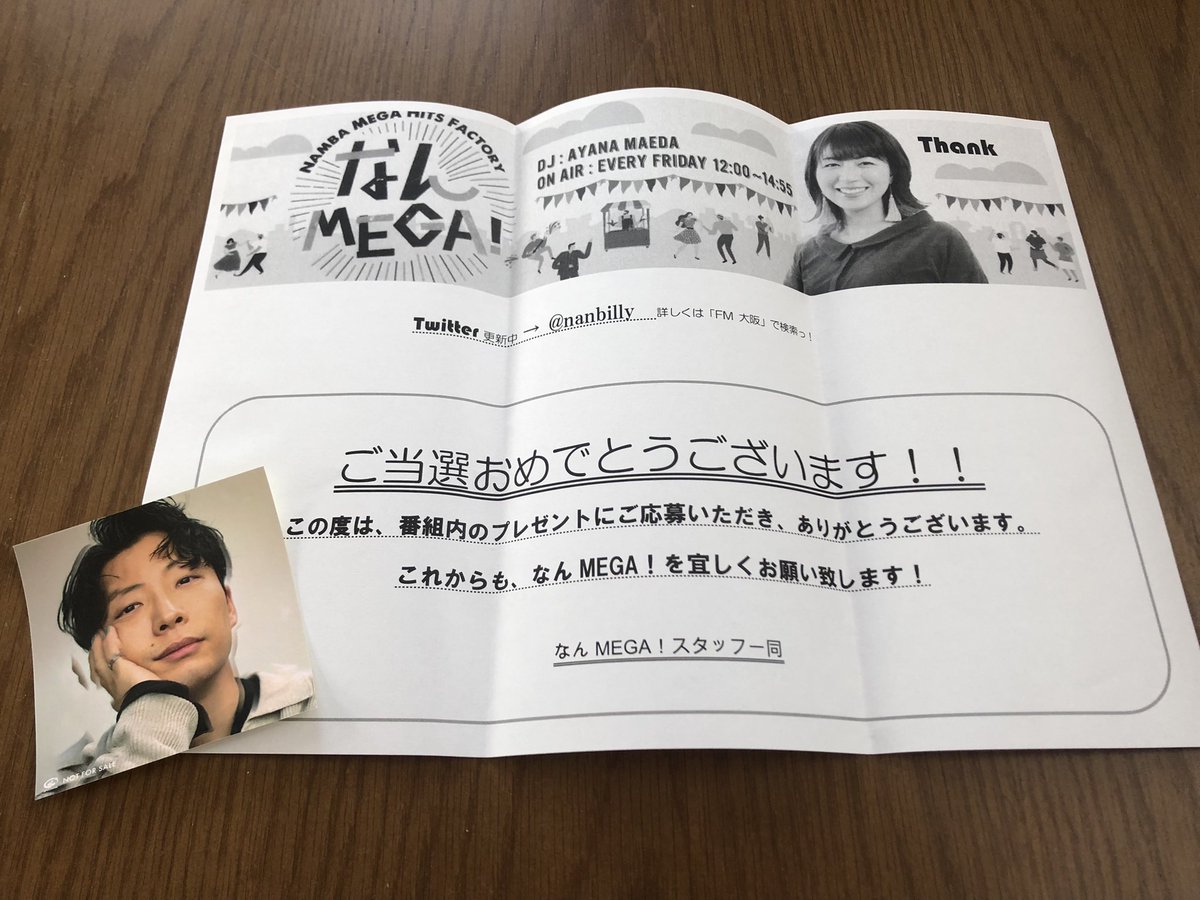 NAMBA MEGA HITS FACTORY
なん
MEGA!
DJ : AYANA MAEDA
ON AIR : EVERY FRIDAY 12:00~14:55
Thank
Twitter 更新中 → @nanbilly 詳しくは「FM 大阪」で検索っ!
ご当選おめでとうございます!!
この度は、番組内のプレゼントにご応募いただき、ありがとうございます。
これからも、なん MEGA!を宜しくお願い致します!
なん MEGA!スタッフ一同
NOT FOR SALE